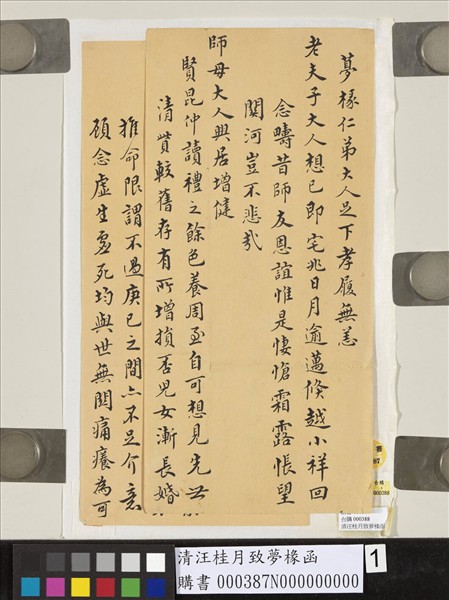 夢椽仁弟大人足下孝履無恙
老夫子大人想已即宅兆日月逾邁倏越小祥回
念疇昔師友恩誼惟是悽愴霜露悵望
關河豈不悲哉
師母大人興居增健
賢昆仲讀禮之餘色養周至自可想見先公
清貲較舊存有所增損否兒女漸長婚
推命限謂不過庚巳之間亦不足介意
顧念虛生虛死均與世無關痛癢為可
台購 000388
清汪桂月致夢椽函
清汪桂月致夢椽函
購書 000387N000000000
1